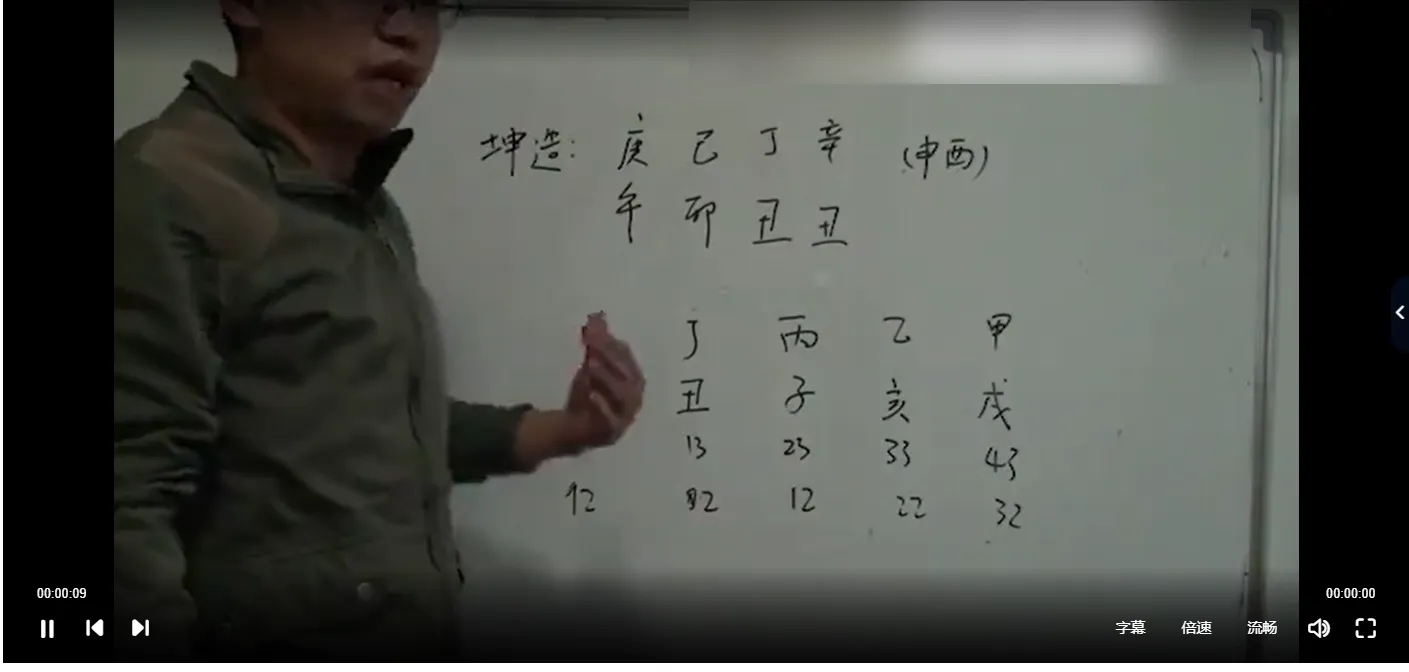 坤造: 庚 己 丁 辛 (申酉)
午 卯 丑 丑
丁 丙 乙 甲
丑 子 亥 戌
13 23 33 43
92 02 12 22 32
00:00:09 00:00:00
字幕 倍速 流畅